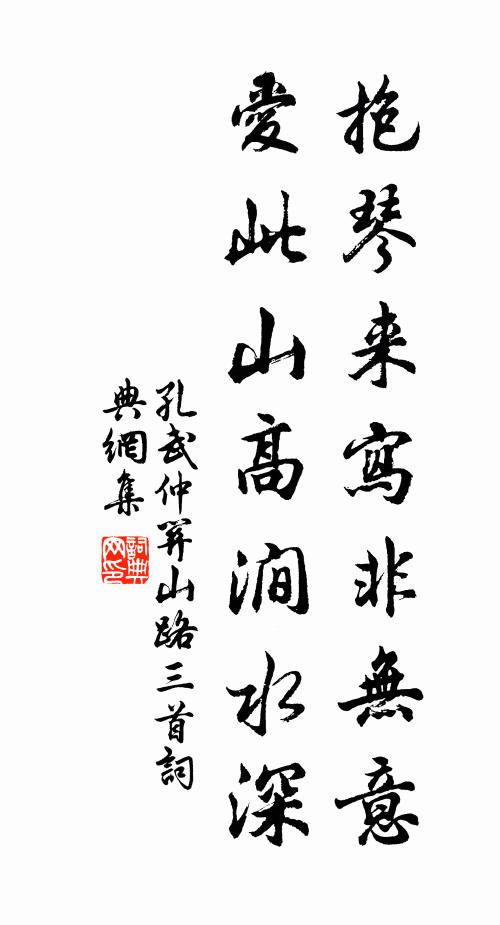 抱琴来寫非無意
愛此山高澗水深
孔武仲开山路三首詞
典網集
詞典
网印